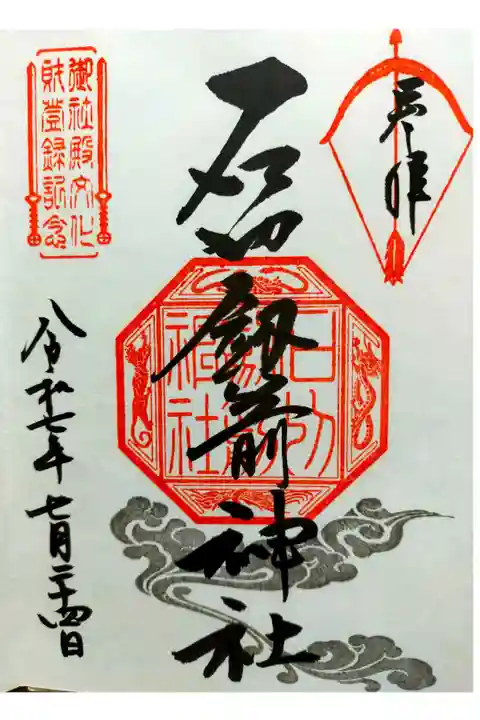 奉拝
石切劔箭神社
石切
劔箭
神社
御社殿文化
財登録記念
令和七年七月二十四日